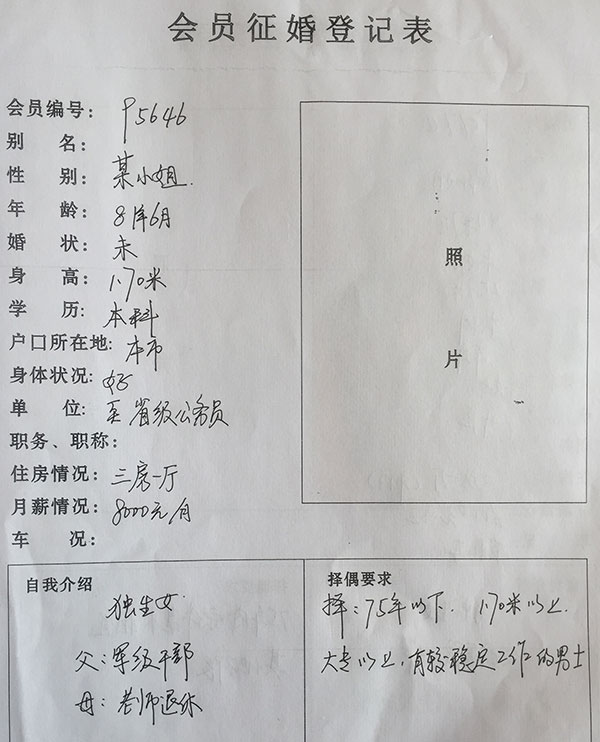 会员征婚登记表
会员编号: P5646
别 名:
性 别: 某小姐.
年 龄: 81年6月
婚 状: 未
身 高: 1.70米
学 历: 本科
户口所在地: 本市
身体状况: 好
单 位: 省级公务员
职务、职称:
住房情况: 三房一厅
月薪情况: 8000元/月
车 况:
照
片
自我介绍
独生女.
父: 军级干部
母: 老师退休
择偶要求
择: 75年以下. 1.70米以上.
大专以上,有较稳定工作的男士